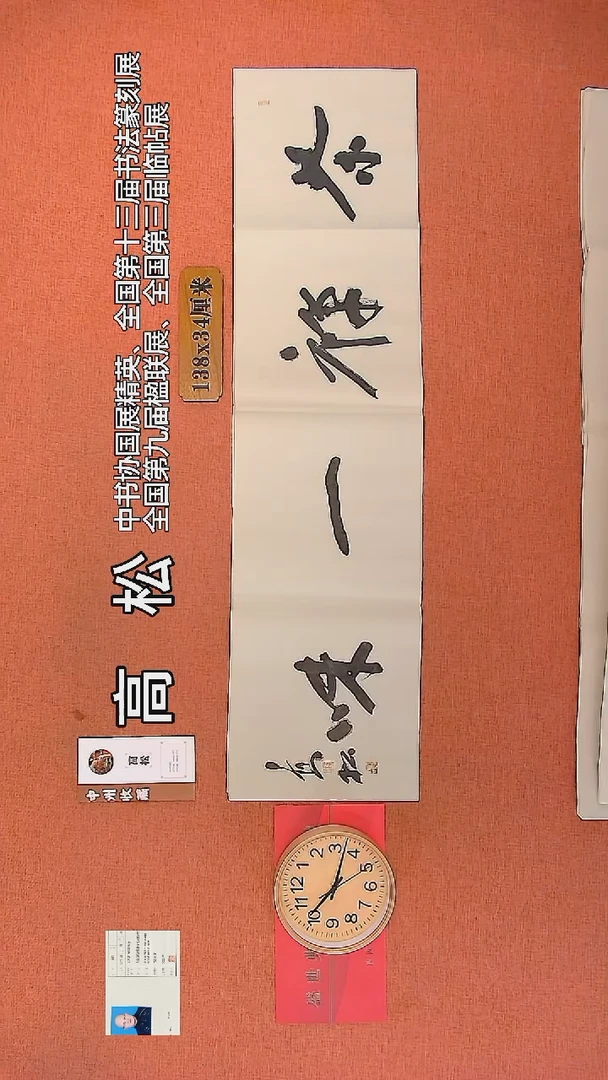 高 松
中书协国展精英、全国第十三届书法篆刻展
全国第九届楹联展、全国第三届临帖展
138x34厘米
茶禅一味
高松
高松
中州收藏
12
1
2
3
4
5
6
7
8
9
10
11